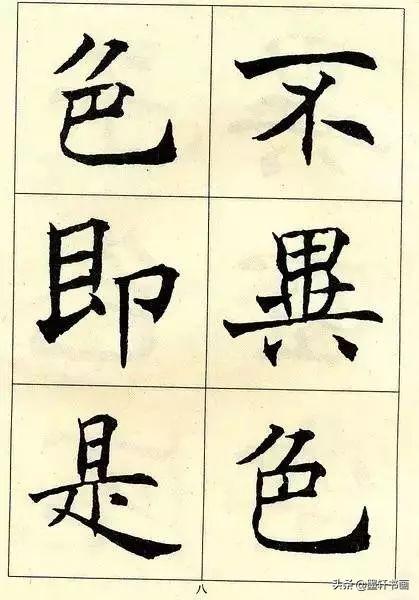 不異色
色即是
八
头条@墨轩书画